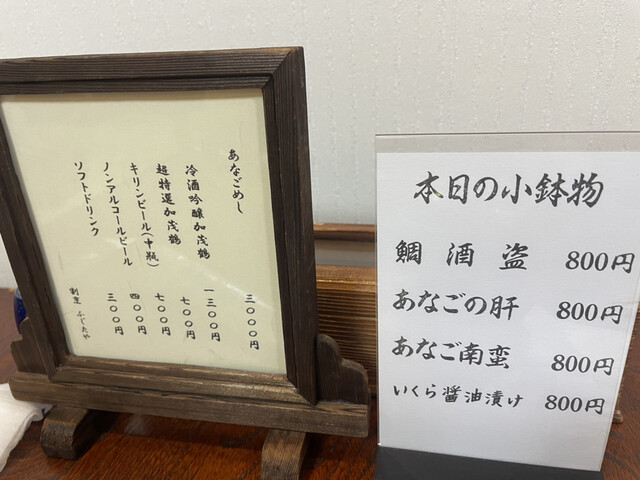 あなごめし 三〇〇〇円
冷酒吟醸加茂鶴 一三〇〇円
超特選加茂鶴 七〇〇円
キリンビール(中瓶) 七〇〇円
ノンアルコールビール 四〇〇円
ソフトドリンク 三〇〇円
割烹 ふじたや
本日の小鉢物
鯛酒盗 800円
あなごの肝 800円
あなご南蛮 800円
いくら醤油漬け 800円